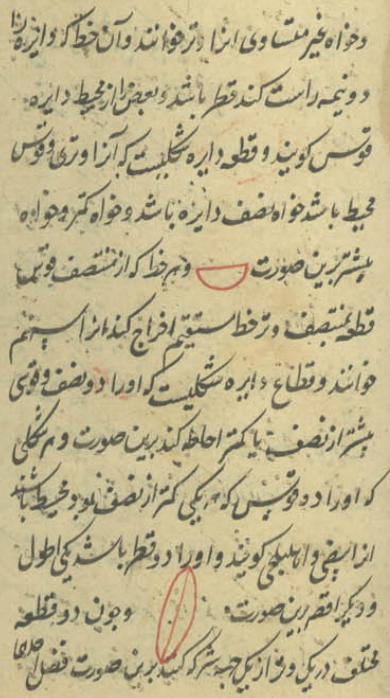 وخواه غیر متساوی آنرا وتر خوانند و آن خط که دایره را
دو نیمه راست کند قطر باشد و بعضی را از محیط دایره
قوس کویند و قطعه دایره شکلیست که آنرا وتری و قوس
محیط باشد خواه نصف دایره باشد و خواه کمتر و خواه
بیشتر برین صورت و هر خط که از منتصف قوس
قطعه بمنتصف وتر خط مستقیم اخراج کند آنرا سهم
خوانند و قطاع دایره شکلیست که اورا دو نصف و قوسی
بیشتر از نصف یا کمتر احاطه کند برین صورت و هر شکلی
که اورا دو قوس که هر یکی کمتر از نصف بود محیط باشند
آنرا بیضی و اهلیلجی کویند و اورا دو قطر باشد یکی اطول
و دیکر اقصر برین صورت وچون دو قطعه
مختلف در یک وتر از یک جهة شرکت کنند برین صورت فضل احدیهما